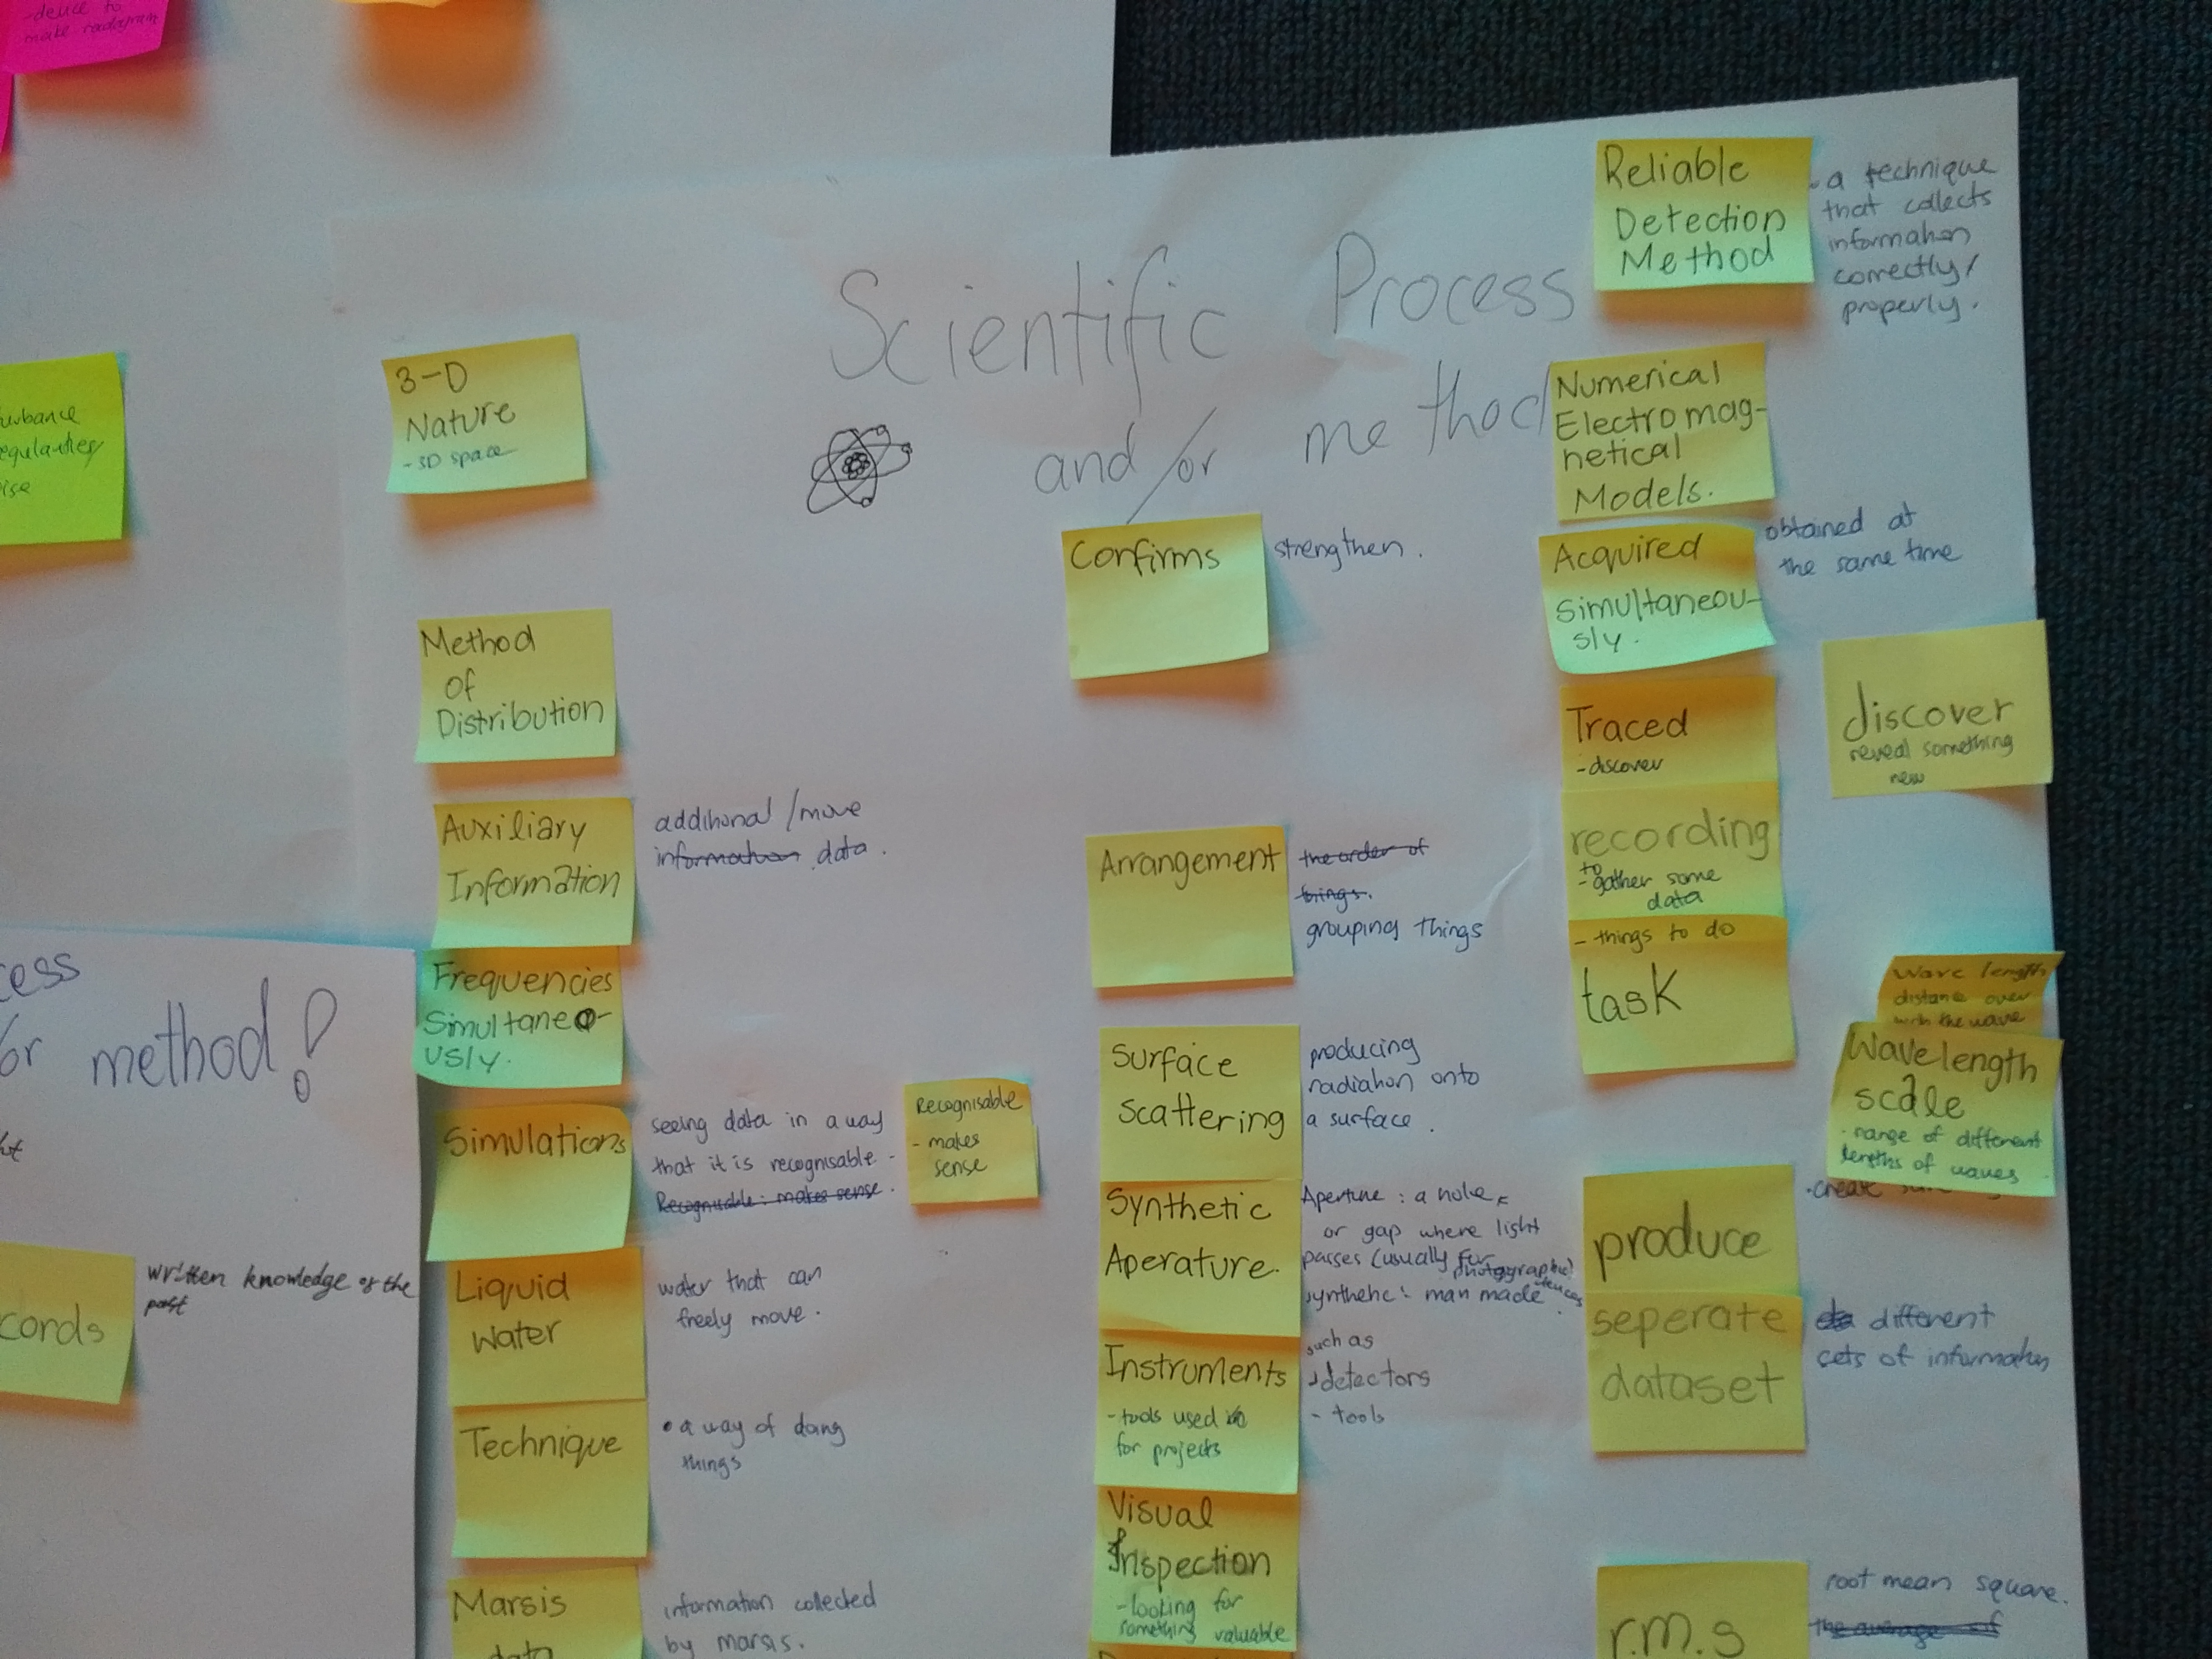 -device to
make radargram
urbance
egularities
ise
cess
or method!
cords
written knowledge of the
past
Scientific Process
and/or method
3-D
Nature
-3D space
Method
of
Distribution
Auxiliary
Information
additional/more
information data.
Frequencies
Simultaneo-
usly.
Simulations
seeing data in a way
that it is recognisable-
Recognisable: makes sense.
Recognisable
- makes
sense
Liquid
water
water that can
freely move.
Technique
• a way of doing
things
Marsis
data
information collected
by marsis.
Confirms
strengthen.
Arrangement
the order of
things.
grouping things
Surface
scattering
producing
radiation onto
a surface.
Synthetic
Aperature.
Aperture: a hole
or gap where light
passes (usually for
photographic)
synthetic: man made
Instruments
-tools used in
for projects
such as
detectors
- tools
Visual
Inspection
-looking for
something valuable
Reliable
Detection
Method
• a technique
that collects
information
correctly/
properly.
Numerical
Electromag-
netical
Models.
Acquired
simultaneou-
sly.
obtained at
the same time
Traced
-discover
discover
reveal something
new
recording
-to gather some
data
- things to do
task
Wave length
distance over
with the wave
Wavelength
scale
• range of different
lengths of waves
produce
•create
seperate
dataset
different
sets of information
r.m.s
root mean square.
the average of